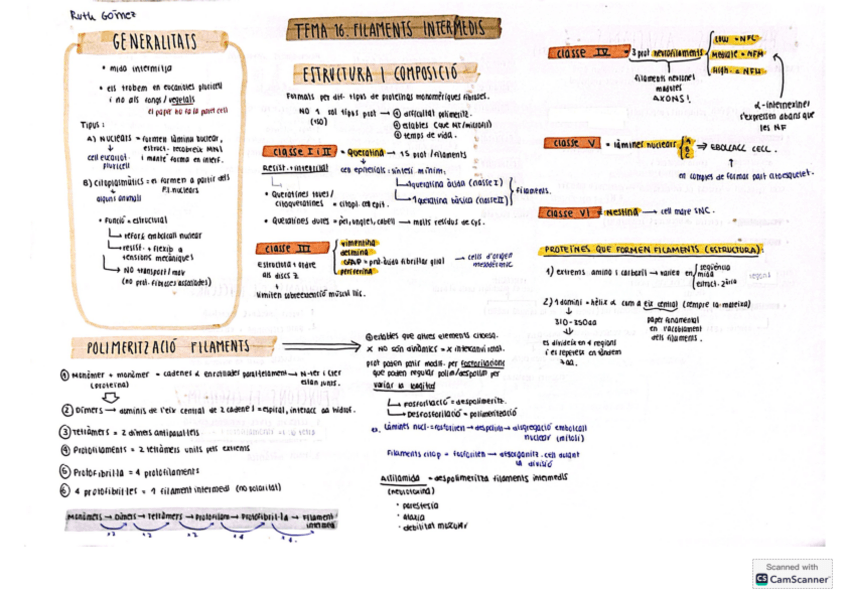 Ruth Gómez
TEMA 16. FILAMENTS INTERMEDIS
GENERALITATS
• mida intermitja
• els trobem en eucariotes pluricel
i no als fongs/vegetals
el paper no fa la paret cel
Tipus:
A) Nuclears = formen làmina nuclear,
i manté forma en interf.
cell eucariot.
pluricell
B) Citoplasmàtics = es formen a partir dels
F.I. nuclears
alguns animals
• Funció = estructural
reforç embolcall nuclear
resist. + flexib a
tensions mecàniques
NO transport/mov
(no prot. fibroses associades)
ESTRUCTURA I COMPOSICIÓ
Formats per dif. tipus de proteïnes monomèriques fibroses.
NO 1 sol tipus prot
dificultat polimeritz.
estables (que MT/microfil)
temps de vida.
classe I i II = Queratina → 15 prot/filaments
cèl epitelials: síntesi mínim:
1 queratina àcida (classe I)
1 queratina bàsica (classe II)
filaments.
• Queratines toves/
citoqueratines = citopl. cèl epit.
• Queratines dures = pèl, ungles, cabell → molts residus de cys.
classe III
vimentina
desmina
GFAP = prot. àcida fibril·lar glial
periferina
→ cèls d'origen
mesodèrmic.
Estructura + ordre
als discs Z
classe IV = 3 prot neurofilaments
Low = NFL
Mediate = NFM
High = NFH
filaments neurones
madures
AXONS!
α-internexines
s'expressen abans que
les NF
classe V = làmines nuclears
A
B
C
⇒ EBOLCALL CELL.
en comptes de formar part citoesquelet.
classe VI = Nestina → cell mare SNC.
PROTEÏNES QUE FORMEN FILAMENTS (ESTRUCTURA):
1) extrems amino i carboxil → varien en
seqüència
mida
estruct. 2ària
2) 1 domini = hèlix α com a eix central (sempre la mateixa)
310-350aa
es divideix en 4 regions
i es repeteix en tàndem
7aa.
paper fonamental
en l'acoblament
dels filaments.
POLIMERITZACIÓ FILAMENTS
① Monòmer + monòmer = cadenes α enrotllades paral·lelament → N-ter i Cter
(proteïna)
estan junts.
② Dímers → dominis de l'eix central de 2 cadenes = espiral, interacc aa hidrof.
③ Tetràmers = 2 dímers antiparal·lels
④ Protofilaments = 2 tetràmers units pels extrems
⑤ Protofibril·la = 4 protofilaments
⑥ 4 protofibril·les = 1 filament intermedi (no polaritat)
Monòmers → Dímers → Tetràmers → Protofilam → Protofibril·la → Filament
intermedi
estables que altres elements citoesq.
X NO són dinàmics = X intercanvi ional.
prot poden patir modif. per fosforilacions
que poden regular polim/despolim per
variar la longitud
Fosforilació = despolimeritz.
Desfosforilació = polimerització
ex. Làmines nucl. = fosforilen → despolim → disgregació embolcall
nuclear (mitosi)
Filaments citop = fosforilen → desorganitz. cell durant
la divisió
Acrilamida = despolimeritza filaments intermedis
(neurotoxina)
• parestèsia
• atàxia
• debilitat muscular
Scanned with
CS CamScanner